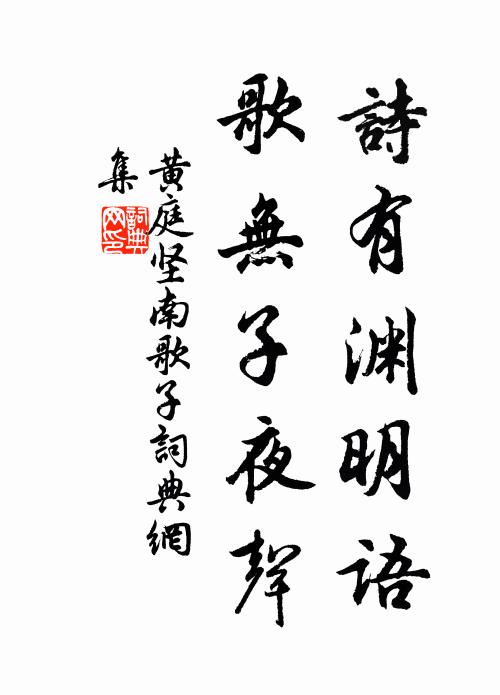 詩有渊明語
歌無子夜聲
黄庭坚南歌子詞典網
集
詞典网印